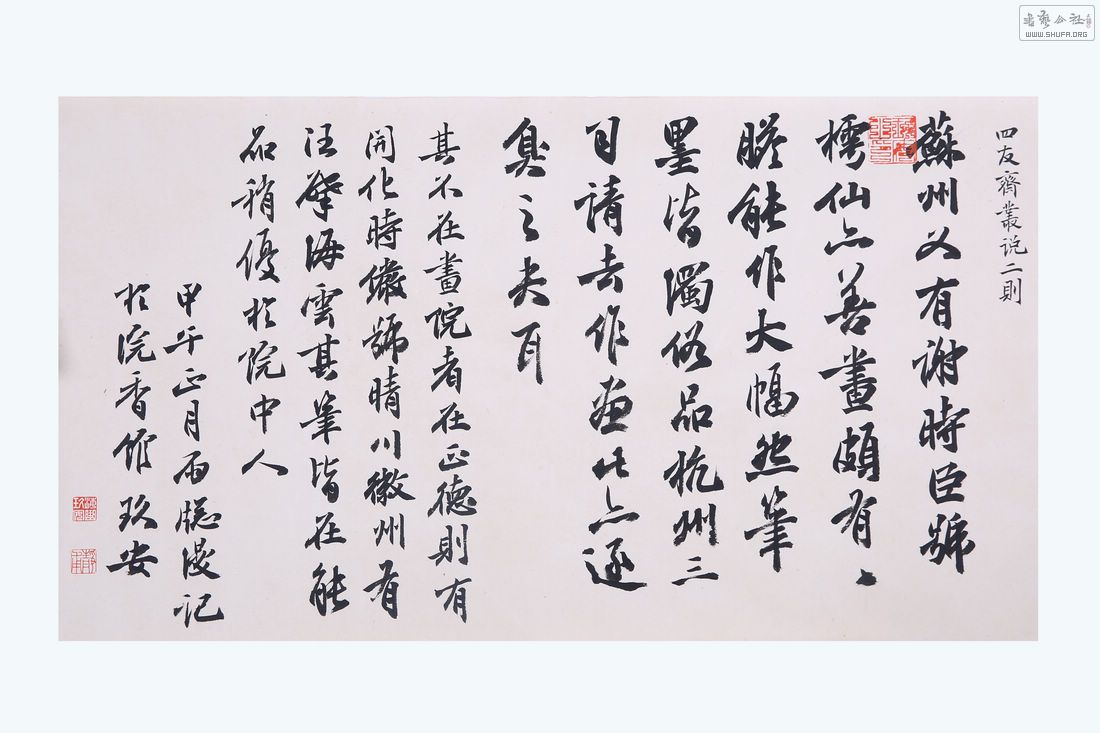 四友齋叢说二則
蘇州又有谢時臣號
樗仙亦善畫頗有
膽能作大幅然筆
墨皆濁俗品杭州三
司请去作畫此亦逐
臭之夫耳
其不在畫院者在正德則有
開化時儼號晴川徽州有
汪肇海雲其筆皆在能
品稍優於院中人
甲午正月雨窓漫记
於浣香館玖安
WWW.SHUFA.ORG